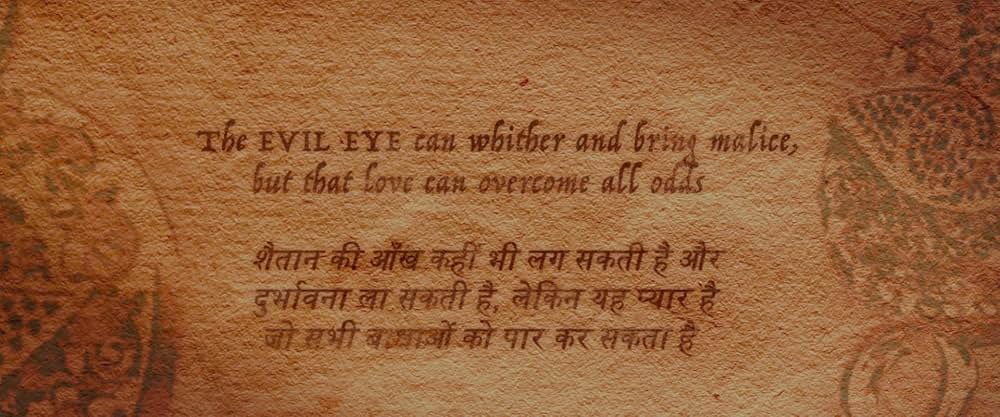 The EVIL EYE can whither and bring malice,
but that love can overcome all odds
शैतान की आँख कहीं भी लग सकती है और
दुर्भावना ला सकती है, लेकिन यह प्यार है
जो सभी को पार कर सकता है